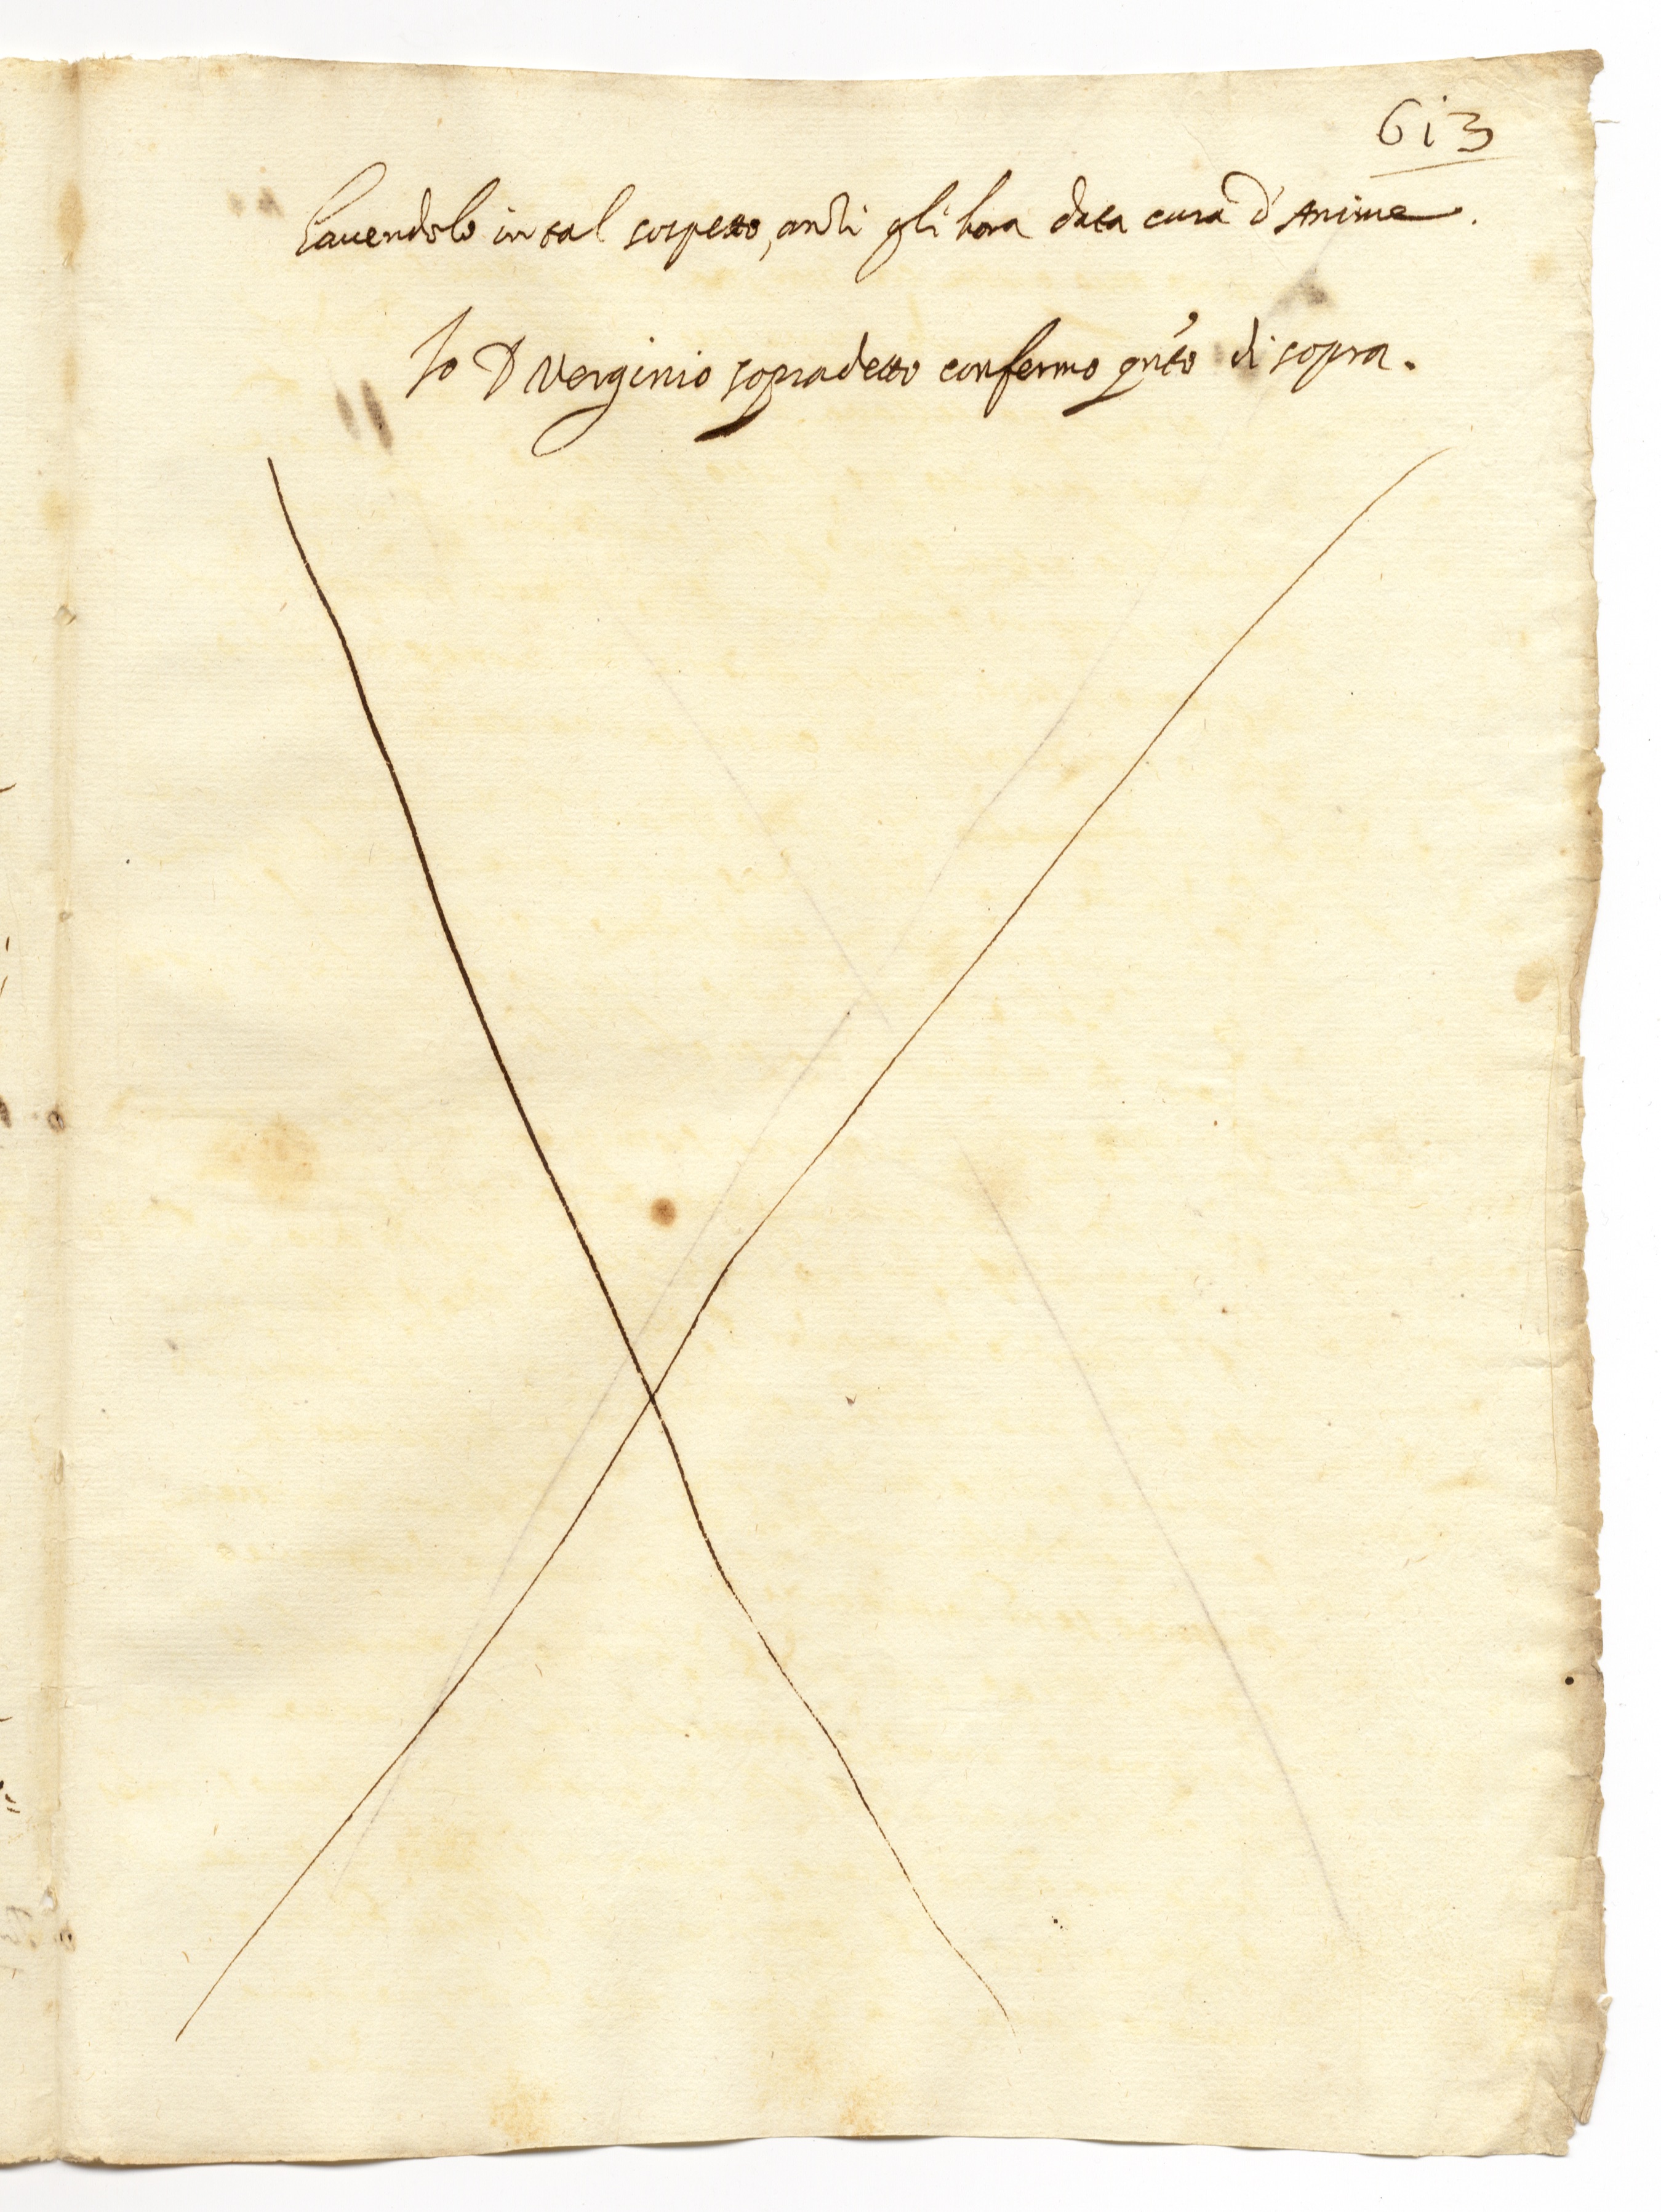 613
hauendolo in tal sospetto, anzi gli hora data cura d'Anime.
Io D Verginio sopradetto confermo qnto di sopra.